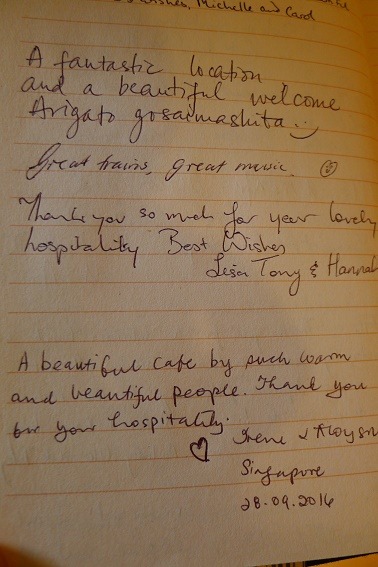 wishes, Michelle and Carol
A fantastic location
and a beautiful welcome
Arigato gosaimashita
Great trains, great music.
Thank you so much for your lovely
hospitality Best Wishes
Lesa Tony & Hannah
A beautiful cafe by such warm
and beautiful people. Thank you
for your hospitality.
Irene & Aloysius
Singapore
28.09.2016